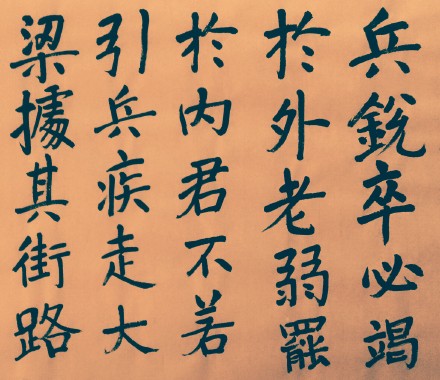 兵銳卒必竭
於外老弱罷
於內君不若
引兵疾走大
梁據其街路